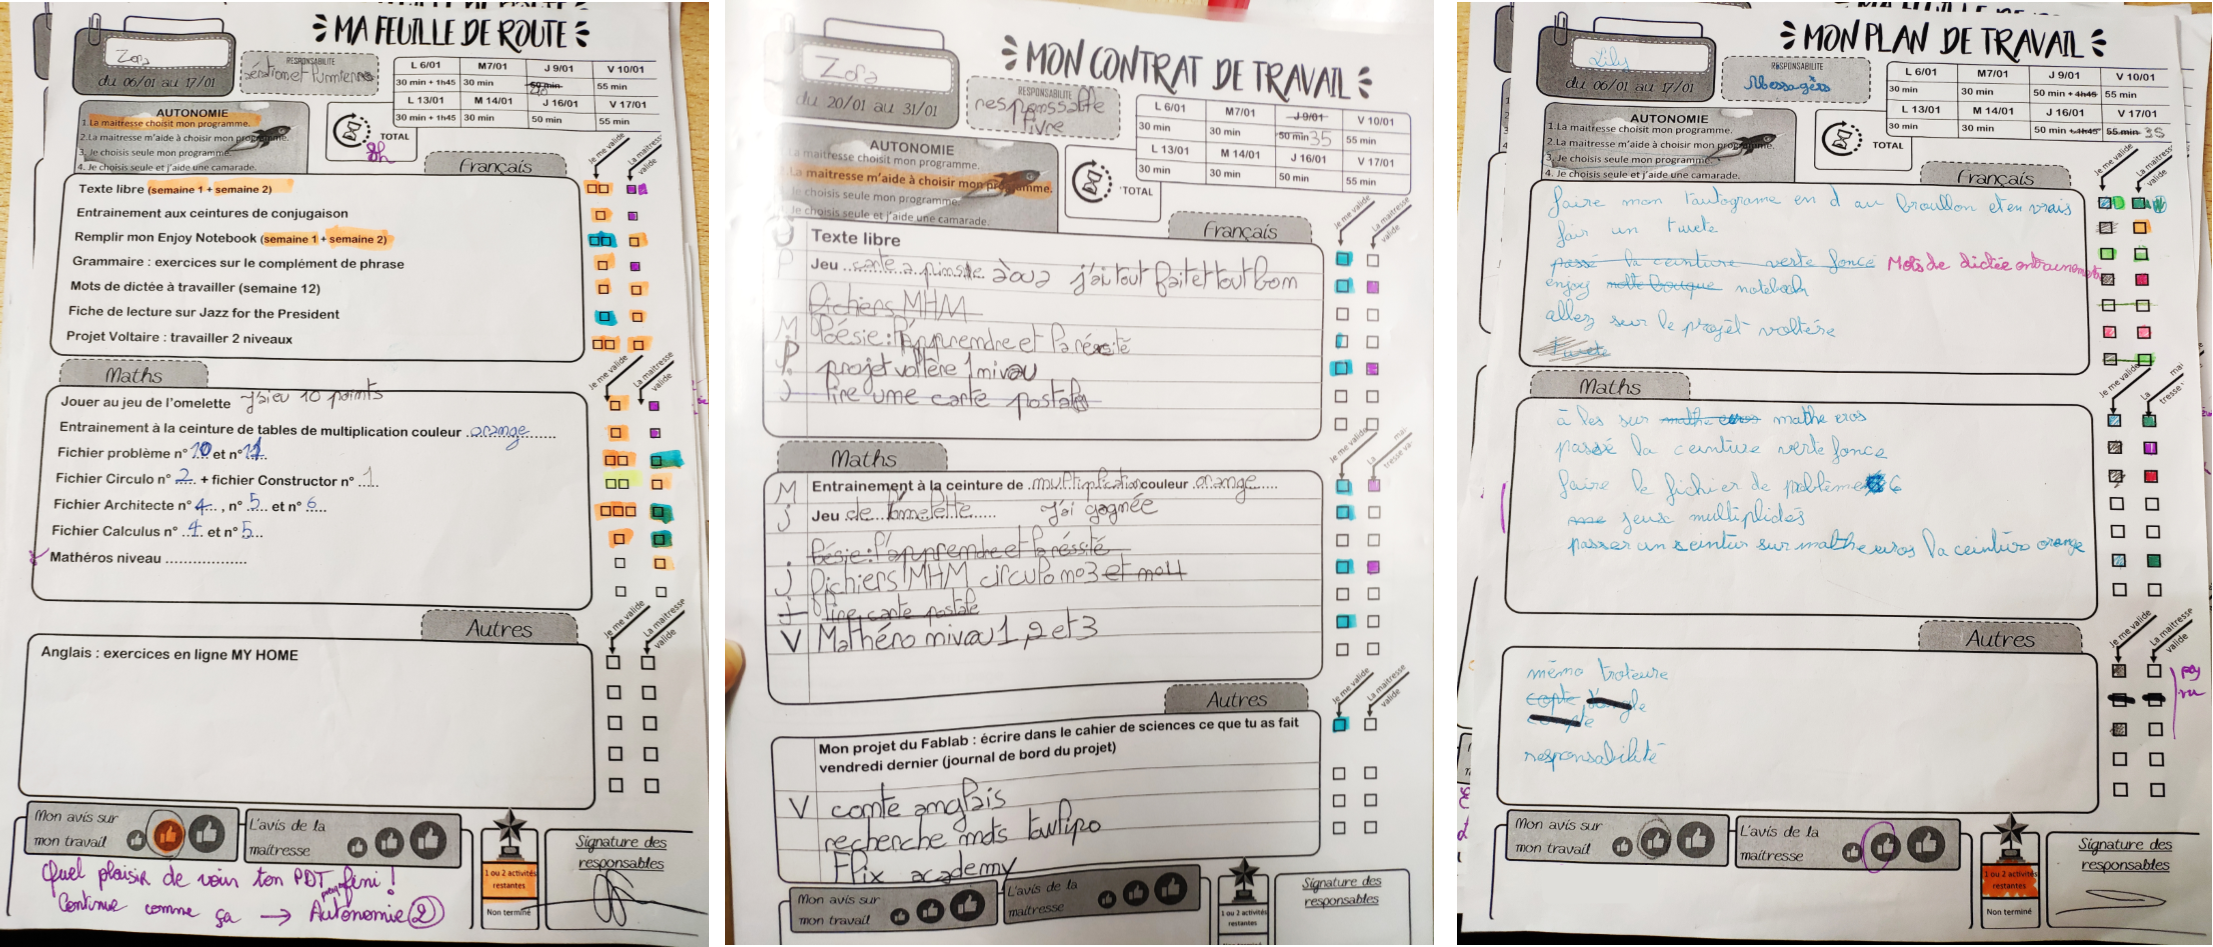 MA FEUILLE DE ROUTE
Zora
du 06/01 au 17/01
RESPONSABILITE
L 6/01 M7/01 J 9/01 V 10/01
30 min + 1h45 30 min 50 min 55 min
L 13/01 M 14/01 J 16/01 V 17/01
30 min + 1h45 30 min 50 min 55 min
AUTONOMIE
1.La maitresse choisit mon programme.
2.La maitresse m'aide à choisir mon programme.
3. Je choisis seule mon programme.
4. Je choisis seule et j'aide une camarade.
TOTAL
8h
Français
Je me valide
La maitresse valide
Texte libre (semaine 1 + semaine 2)
Entrainement aux ceintures de conjugaison
Remplir mon Enjoy Notebook (semaine 1 + semaine 2)
Grammaire : exercices sur le complément de phrase
Mots de dictée à travailler (semaine 12)
Fiche de lecture sur Jazz for the President
Projet Voltaire : travailler 2 niveaux
Maths
Je me valide
La maitresse valide
Jouer au jeu de l'omelette j'ai eu 10 points
Entrainement à la ceinture de tables de multiplication couleur orange
Fichier problème n° 10 et n° 11
Fichier Circulo n° 2 + fichier Constructor n° 1
Fichier Architecte n° 4 , n° 5 et n° 6
Fichier Calculus n° 4 et n° 5
Mathéros niveau ..................
Autres
Je me valide
La maitresse valide
Anglais : exercices en ligne MY HOME
Mon avis sur mon travail
L'avis de la maîtresse
1 ou 2 activités restantes
Non terminé
Signature des responsables
Quel plaisir de voir ton PDT fini !
Continue comme ça → Autonomie 2
MON CONTRAT DE TRAVAIL
Zora
du 20/01 au 31/01
RESPONSABILITE
responssable
livre
L 6/01 M7/01 J 9/01 V 10/01
30 min 30 min 50 min 35 55 min
L 13/01 M 14/01 J 16/01 V 17/01
30 min 30 min 50 min 55 min
AUTONOMIE
La maitresse choisit mon programme.
La maitresse m'aide à choisir mon programme.
Je choisis seule mon programme.
Je choisis seule et j'aide une camarade.
TOTAL
Français
Je me valide
La maitresse valide
Texte libre
Jeu carte a pinsse j'ai tout fait et tout bon
fichiers MHM
M Poésie : l'apprendre et la récité
projet voltère 1 nivau
J lire une carte postale
Maths
Je me valide
M Entrainement à la ceinture de multiplication couleur orange
J Jeu de l'omelette j'ai gagnée
Poésie : l'apprendre et la réssité
J fichiers MHM circulo no3 et no4
lire carte postale
V Mathéro nivau 1, 2 et 3
Autres
Je me valide
La maitresse valide
Mon projet du Fablab : écrire dans le cahier de sciences ce que tu as fait
vendredi dernier (journal de bord du projet)
V comte anglais
recherche mots
Flix academy
Mon avis sur mon travail
L'avis de la maîtresse
1 ou 2 activités restantes
Signature des responsables
MON PLAN DE TRAVAIL
Lily
du 06/01 au 17/01
RESPONSABILITE
Messagère
L 6/01 M7/01 J 9/01 V 10/01
30 min 30 min 50 min + 1h45 55 min
L 13/01 M 14/01 J 16/01 V 17/01
30 min 30 min 50 min + 1h45 55 min 35
AUTONOMIE
1.La maitresse choisit mon programme.
2.La maitresse m'aide à choisir mon programme.
3. Je choisis seule mon programme.
4. Je choisis seule et j'aide une camarade.
TOTAL
Français
Je me valide
La maitresse valide
faire mon tautograme en d au brouillon et en vrais
fair un twete
passé la ceinture verte foncé Mots de dictée entrainement
enjoy notebook
allez sur le projet voltère
twete
Maths
Je me valide
La maitresse valide
à les sur mathe eros
passé la ceinture verte fonce
faire le fichier de poblème 6
jeux multiplidés
passer un seintur sur mathe eros la ceinture orange
Autres
Je me valide
La maitresse valide
mémo troteure
responsabilité
Mon avis sur mon travail
L'avis de la maîtresse
1 ou 2 activités restantes
Non terminé
Signature des responsables